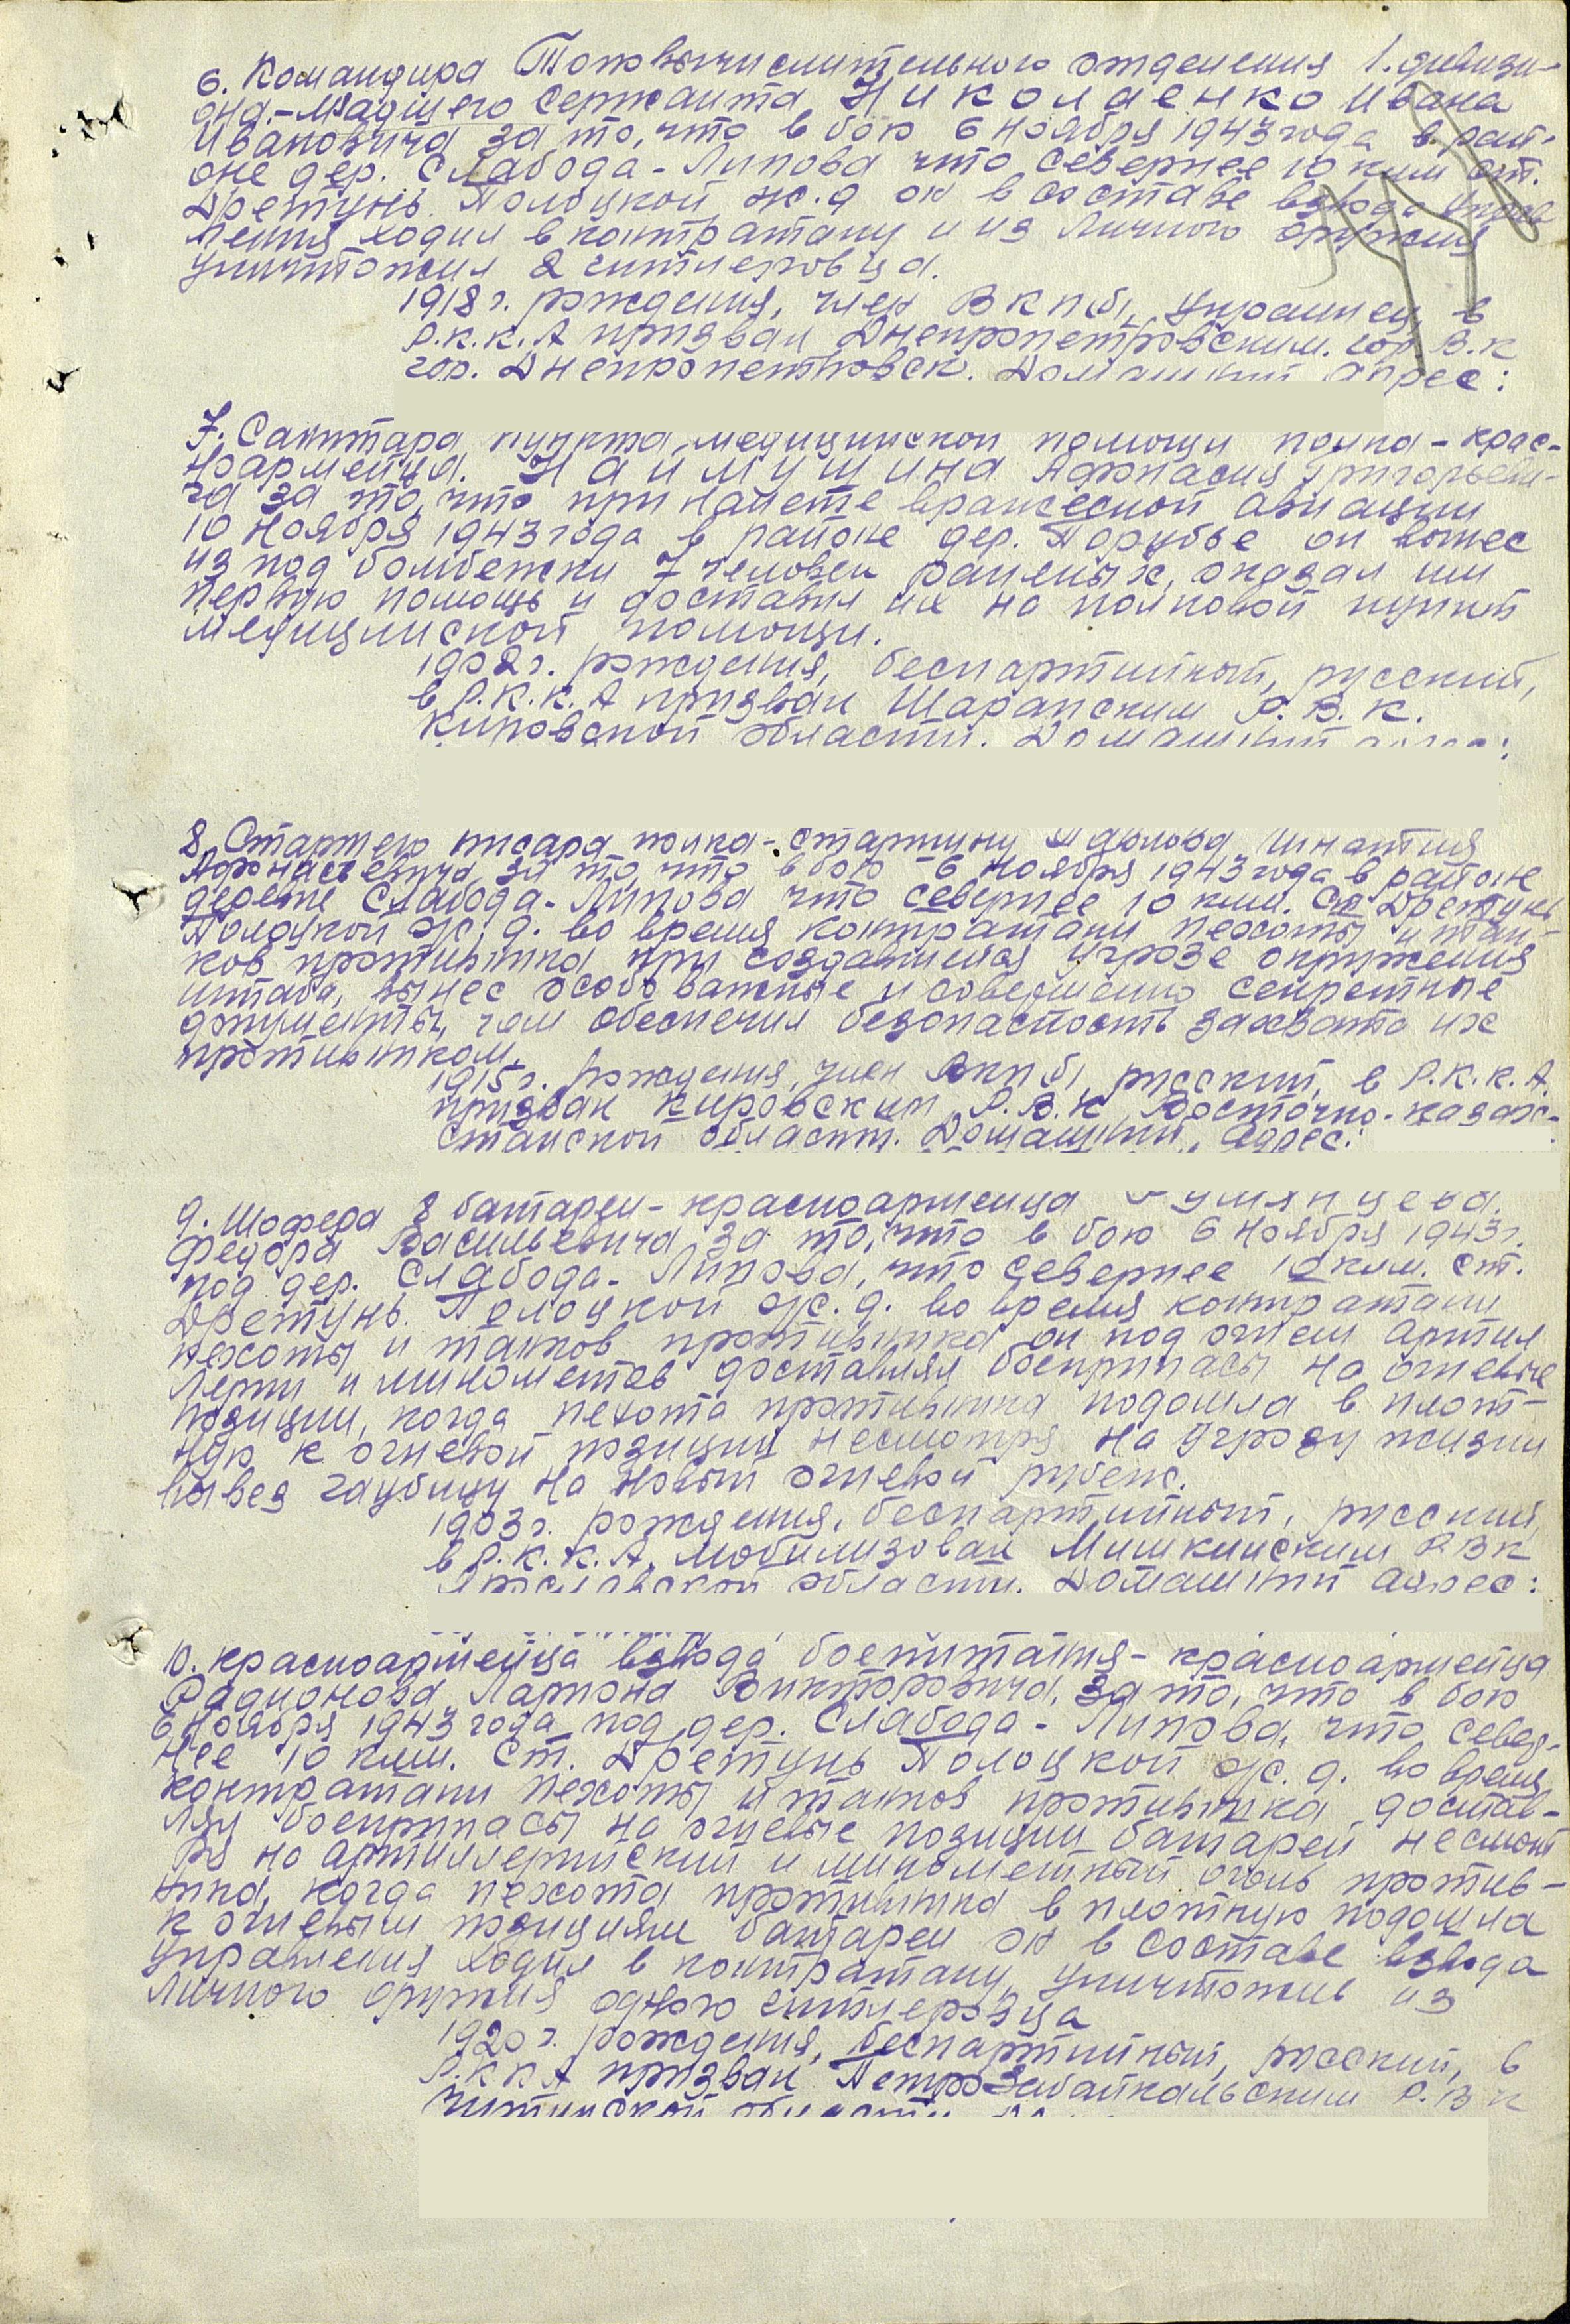 6. Командира Топовычислительного отделения 1. дивизи-
она.- Младшего Сержанта Николаенко Ивана
Ивановича за то, что в бою 6 ноября 1943 года в рай-
оне дер. Слабода-Липова что севернее 10 клм ст.
Дретунь Полоцкой ж.д он в составе взвода управ
ления ходил в контратаку и из личного оружия
уничтожил 2 гитлеровца.
1918 г. рождения, член ВКПб, украинец, в
Р.К.К.А призван Днепропетровским. гор. В.К
гор. Днепропетровск. Домашний адрес:
7. Санитара пункта медицинской помощи полка - крас-
ноармейца. Наймушина Афанасия Григорьеви-
ча за то, что при налете вражеской авиации
10 ноября 1943 года в районе дер. Порубье он вынес
из под бомбежки 7 человек раненых, оказал им
первую помощь и доставил их на полковой пункт
медицинской помощи.
1902 г. рождения, беспартийный, русский,
в Р.К.К.А призван Шарапским Р.В.К.
Кировской области. Домашний адрес:
8. Старшего писаря полка - старшину Павлова Игнатия
Афонасевича за то что в бою 6 ноября 1943 года в районе
деревне Слабода-Липова что севернее 10 клм. Ст Дретунь
Полоцкой ж.д. во время контратаки пехоты и тан-
ков противника при создавшейся угрозе окружения
штаба, вынес особо важные и совершенно секретные
документы, чем обеспечил безопасность захвата их
противником.
1915 г. рождения, член ВКПб, русский, в Р.К.К.А.
призван Кировским Р.В.К Восточно-казах-
станской области. Домашний адрес:
9. Шофера 8 батареи - красноармейца Румянцева
Федора Васильевича за то, что в бою 6 ноября 1943 г.
под дер. Слабода-Липова, что севернее 10 клм. ст.
Дретунь. Полоцкой ж.д. во время контратаки
пехоты и танков противника он под огнем артил
лерии и минометов доставлял боеприпасы на огневые
позиции, когда пехота противника подошла в плот-
ную к огневой позиции несмотря на угрозу жизни
вывез гаубицу на новый огневой рубеж.
1903 г. рождения, беспартийный, русский,
в Р.К.К.А. мобилизован Мишкинским РВК
Ярославской области. Домашний адрес:
10. Красноармейца взвода боепитания - красноармейца
Радионова Лариона Викторовича, за то, что в бою
6 ноября 1943 года под дер. Слабода-Липова, что север-
нее 10 клм. ст. Дретунь Полоцкой ж.д. во время
контратаки пехоты и танков противника достав-
ляя боеприпасы на огневые позиции батарей несмот
ря на артиллерийский и минометный огонь против-
ника, когда пехота противника в плотную подошла
к огневым позициям батареи он в составе взвода
управления ходил в контратаку, уничтожив из
личного оружия одного гитлеровца
1920 г. рождения, беспартийный, русский, в
Р.ККА призван Петрозабайкальским Р.ВК
Читинской области